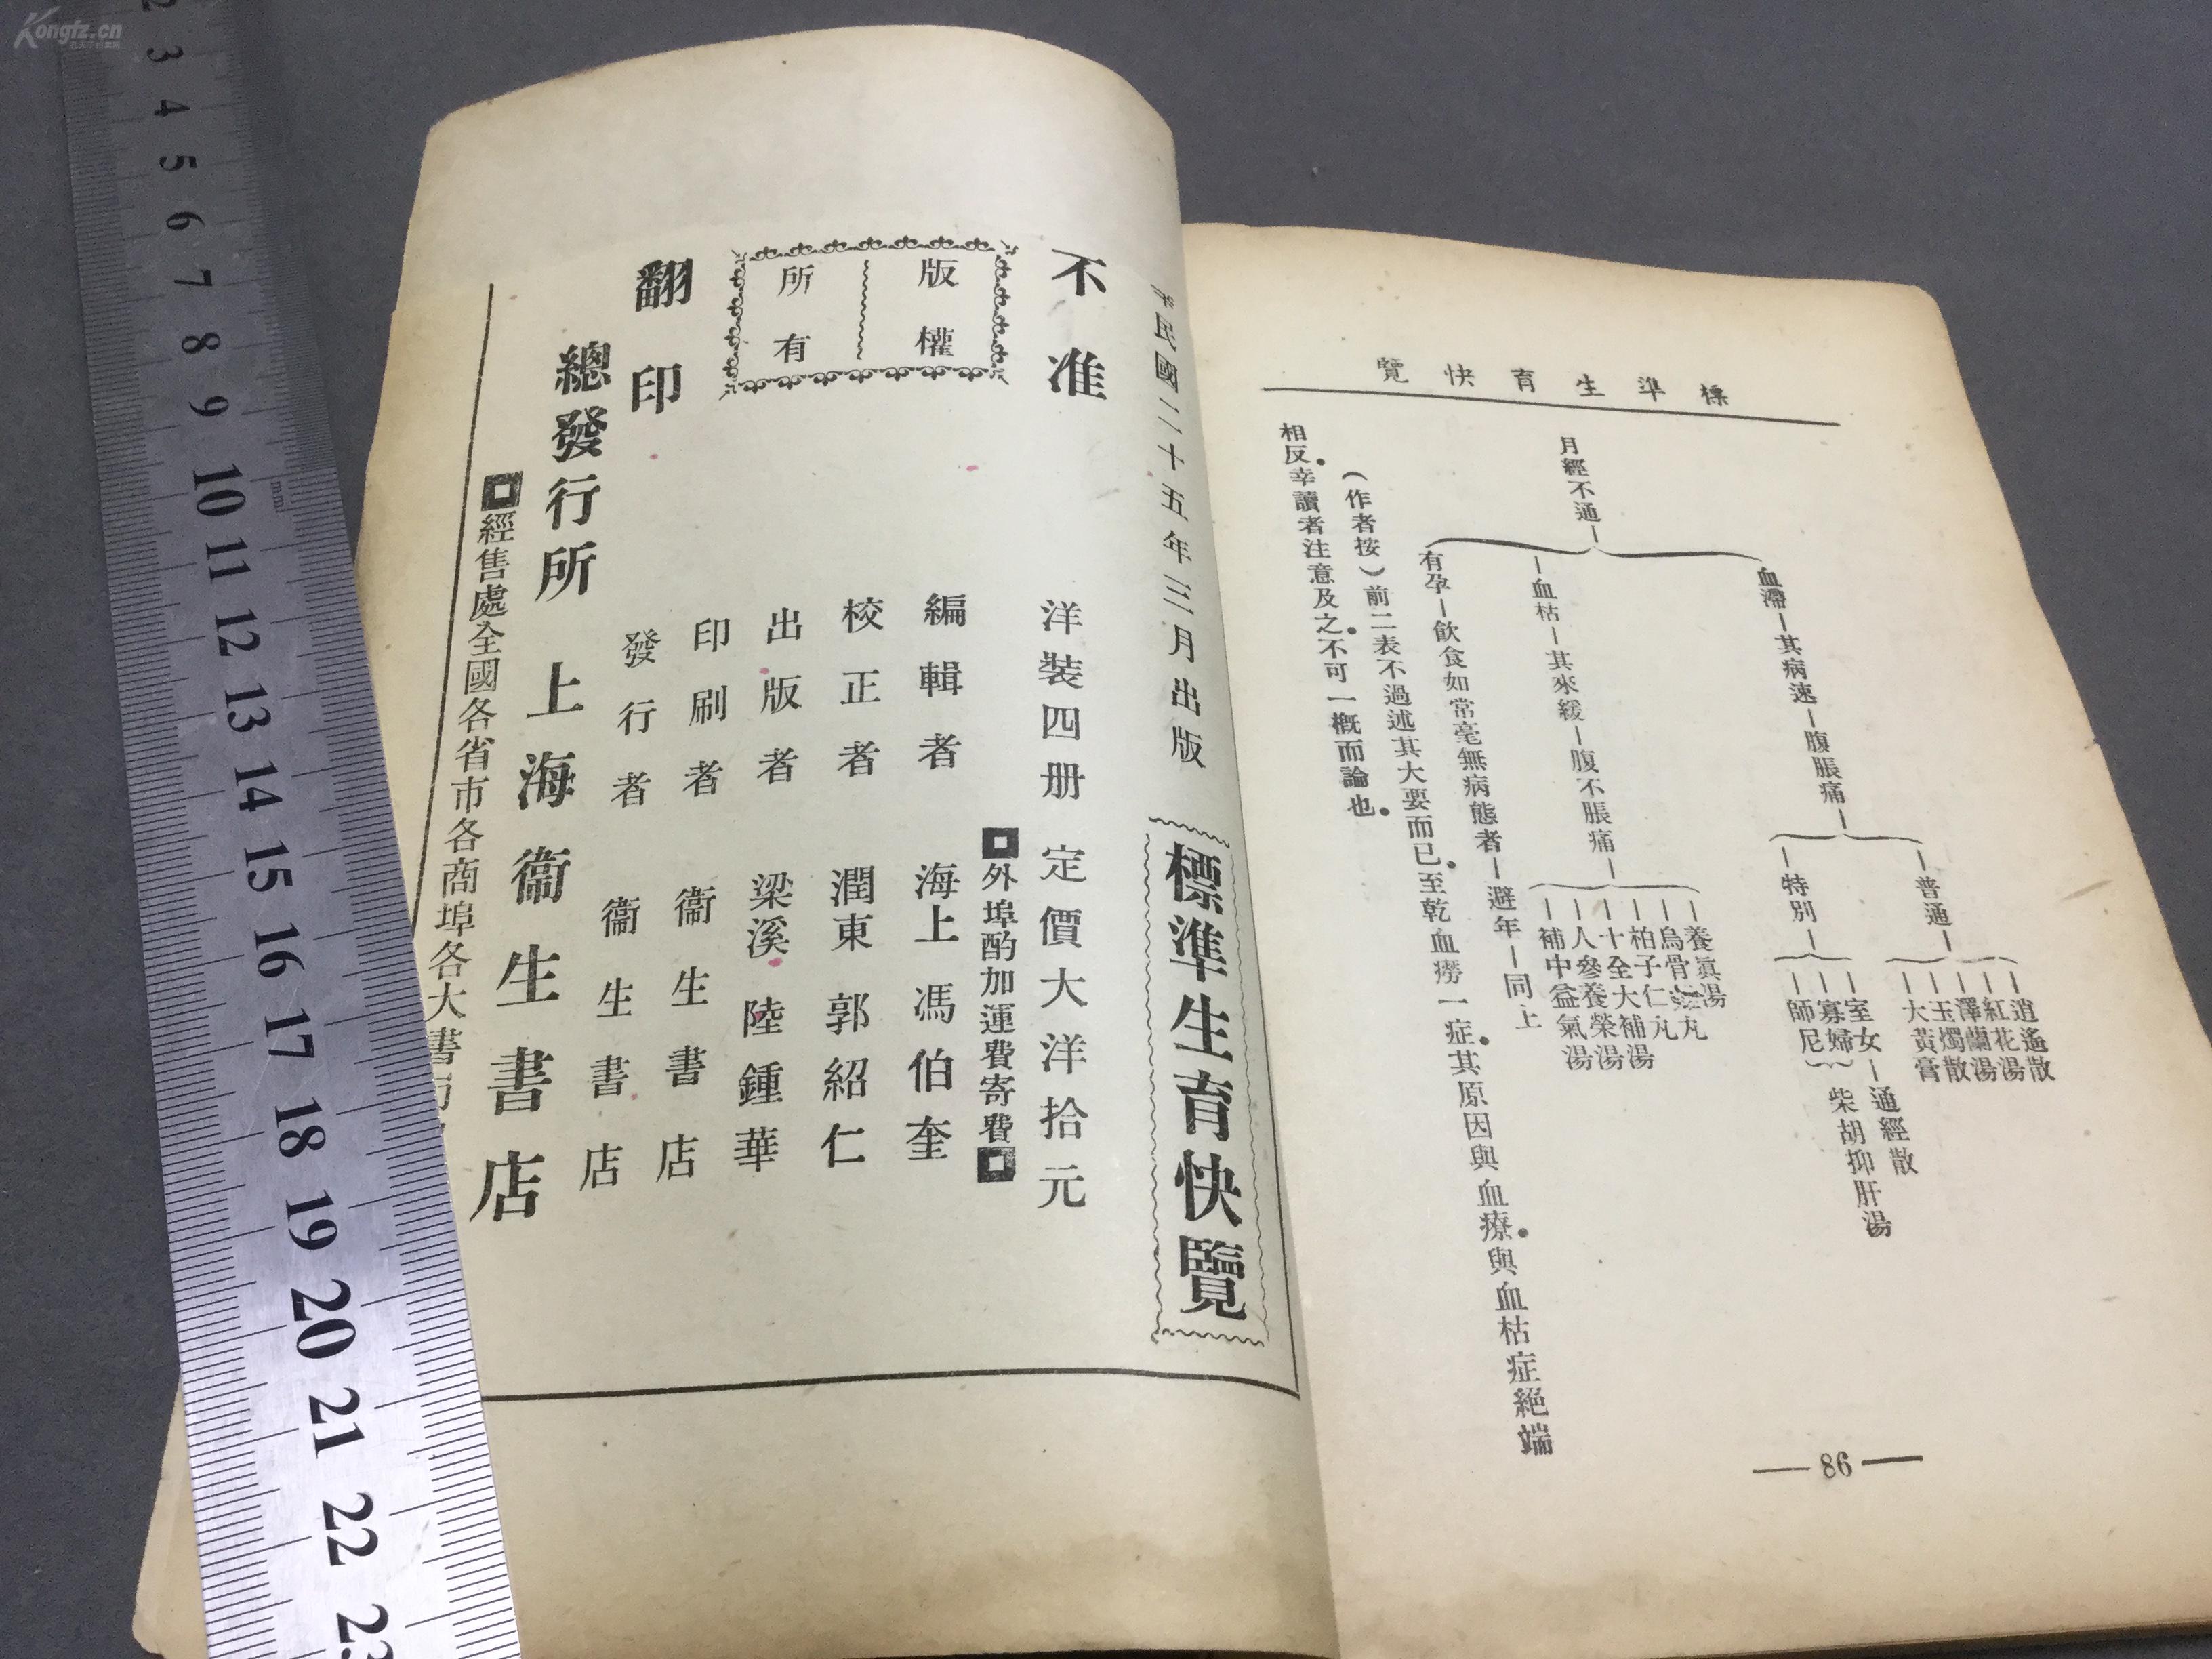 Kongfz.cn
標準生育快覽
月經不通
血滯—其病速—腹脹痛
普通
逍遙散
紅花湯
澤蘭湯
玉燭散
大黃膏
特別
室女—通經散
寡婦
師尼
柴胡抑肝湯
血枯—其來緩—腹不脹痛
養眞湯
烏骨雞丸
柏子仁丸
十全大補湯
人參養榮湯
補中益氣湯
有孕—飲食如常毫無病態者—避年—同上
(作者按)前二表不過述其大要而已.至乾血癆一症.其原因與血療.與血枯症絕端
相反.幸讀者注意及之.不可一概而論也.
86
民國二十五年三月出版
標準生育快覽
不准
翻印
版權
所有
洋裝四册 定價大洋拾元
外埠酌加運費寄費
編輯者 海上馮伯奎
校正者 潤東郭紹仁
出版者 梁溪陸鍾華
印刷者 衞生書店
發行者 衞生書店
總發行所 上海衞生書店
經售處全國各省市各商埠各大書
2 3 4 5 6 7 8 9 10 11 12 13 14 15 16 17 18 19 20 21 22 23
mm